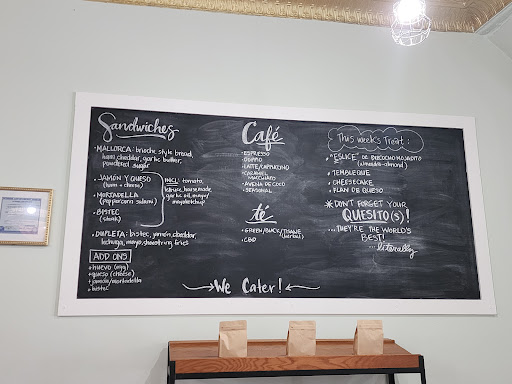 Sandwiches
•MALLORCA: brioche style bread,
ham, cheddar, garlic butter,
powdered sugar
•JAMÓN Y QUESO
(ham + cheese)
MORTADELLA
(pepperoni salami)
•BISTEC
(steak)
INCL: tomato,
lettuce, housemade
garlic oil, mayo/
mayoketchup
•DUPLETA: bistec, jamón, cheddar
lechuga, mayo, shoestring fries
ADD ONS
+huevo (egg)
+queso (cheese)
+jamón/mortadella
+bistec
Café
•ESPRESSO
•DOPPIO
•LATTE/CAPPUCCINO
•CARAMEL
MACCHIATO
•AVENA DE COCO
•SEASONAL
té
•GREEN/BLACK/TISANE
(herbal)
•CBD
This week's Treat:
*"ESLICE" DE BIZCOCHO MOJADITO
(almendra-almond)
•TEMBLEQUE
•CHEESECAKE
•FLAN DE QUESO
*DON'T FORGET YOUR
QUESITO(S)!
...THEY'RE THE WORLD'S
BEST!
...literally
We Cater!